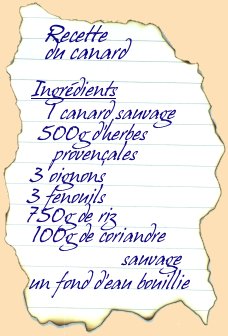 Recette
du canard
Ingrédients
1 canard sauvage
500g d'herbes
provençales
3 oignons
3 fenouils
750g de riz
100g de coriandre
sauvage
un fond d'eau bouillie